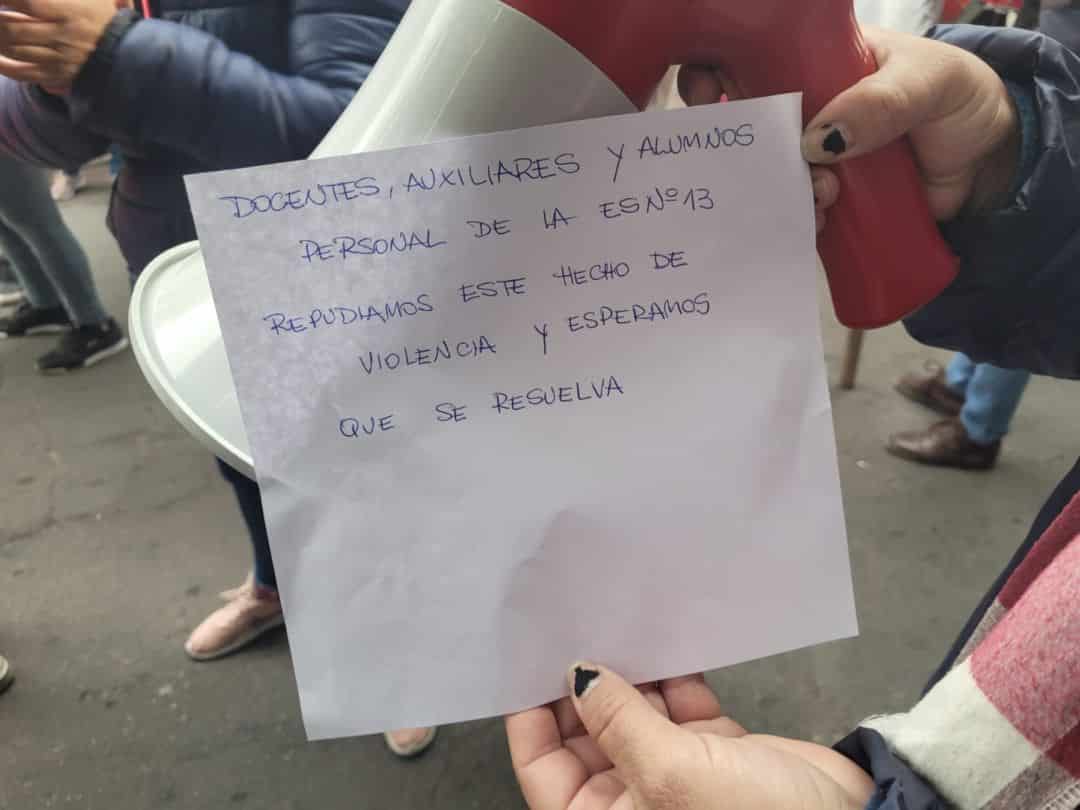 DOCENTES, AUXILIARES Y ALUMNOS
PERSONAL DE LA ES Nº 13
REPUDIAMOS ESTE HECHO DE
VIOLENCIA Y ESPERAMOS
QUE SE RESUELVA